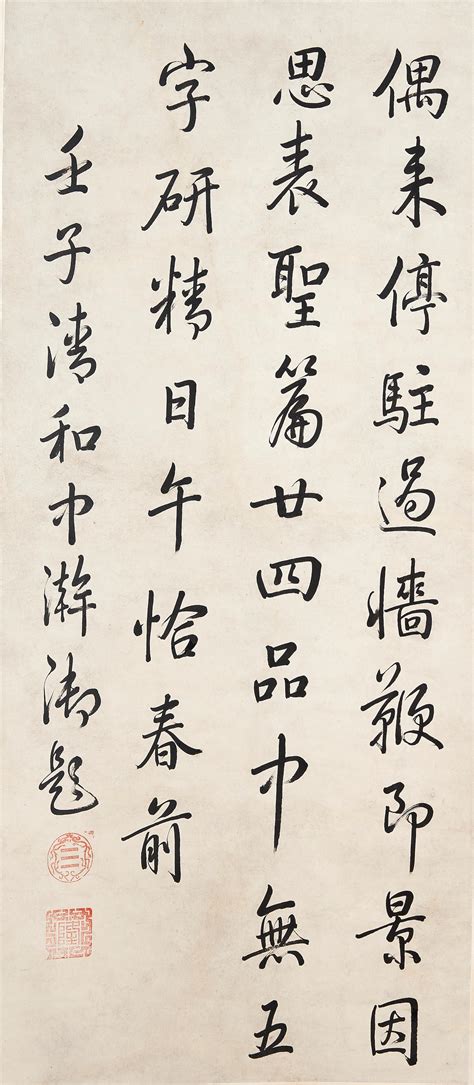 偶来停駐過墻鞭即景因
思表聖篇廿四品中無五
字研精日午恰春前
壬子清和中澣御題